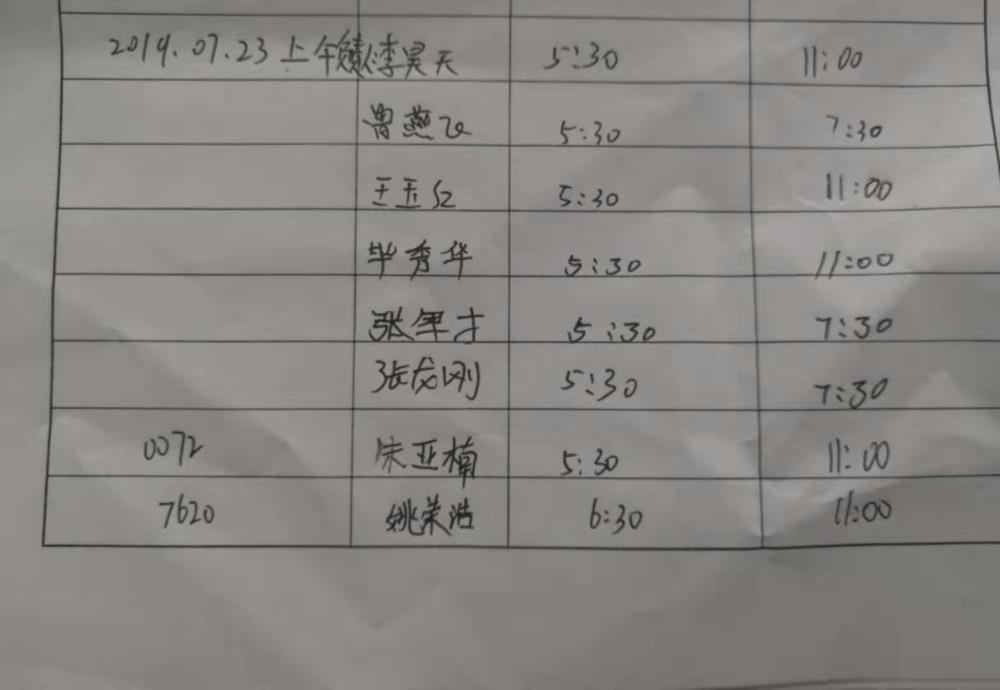 2019.07.23 上午 李昊天 5:30 11:00
曾燕飞 5:30 7:30
王玉红 5:30 11:00
毕秀华 5:30 11:00
张军才 5:30 7:30
张龙刚 5:30 7:30
0072 朱亚楠 5:30 11:00
7620 姚荣浩 6:30 11:00